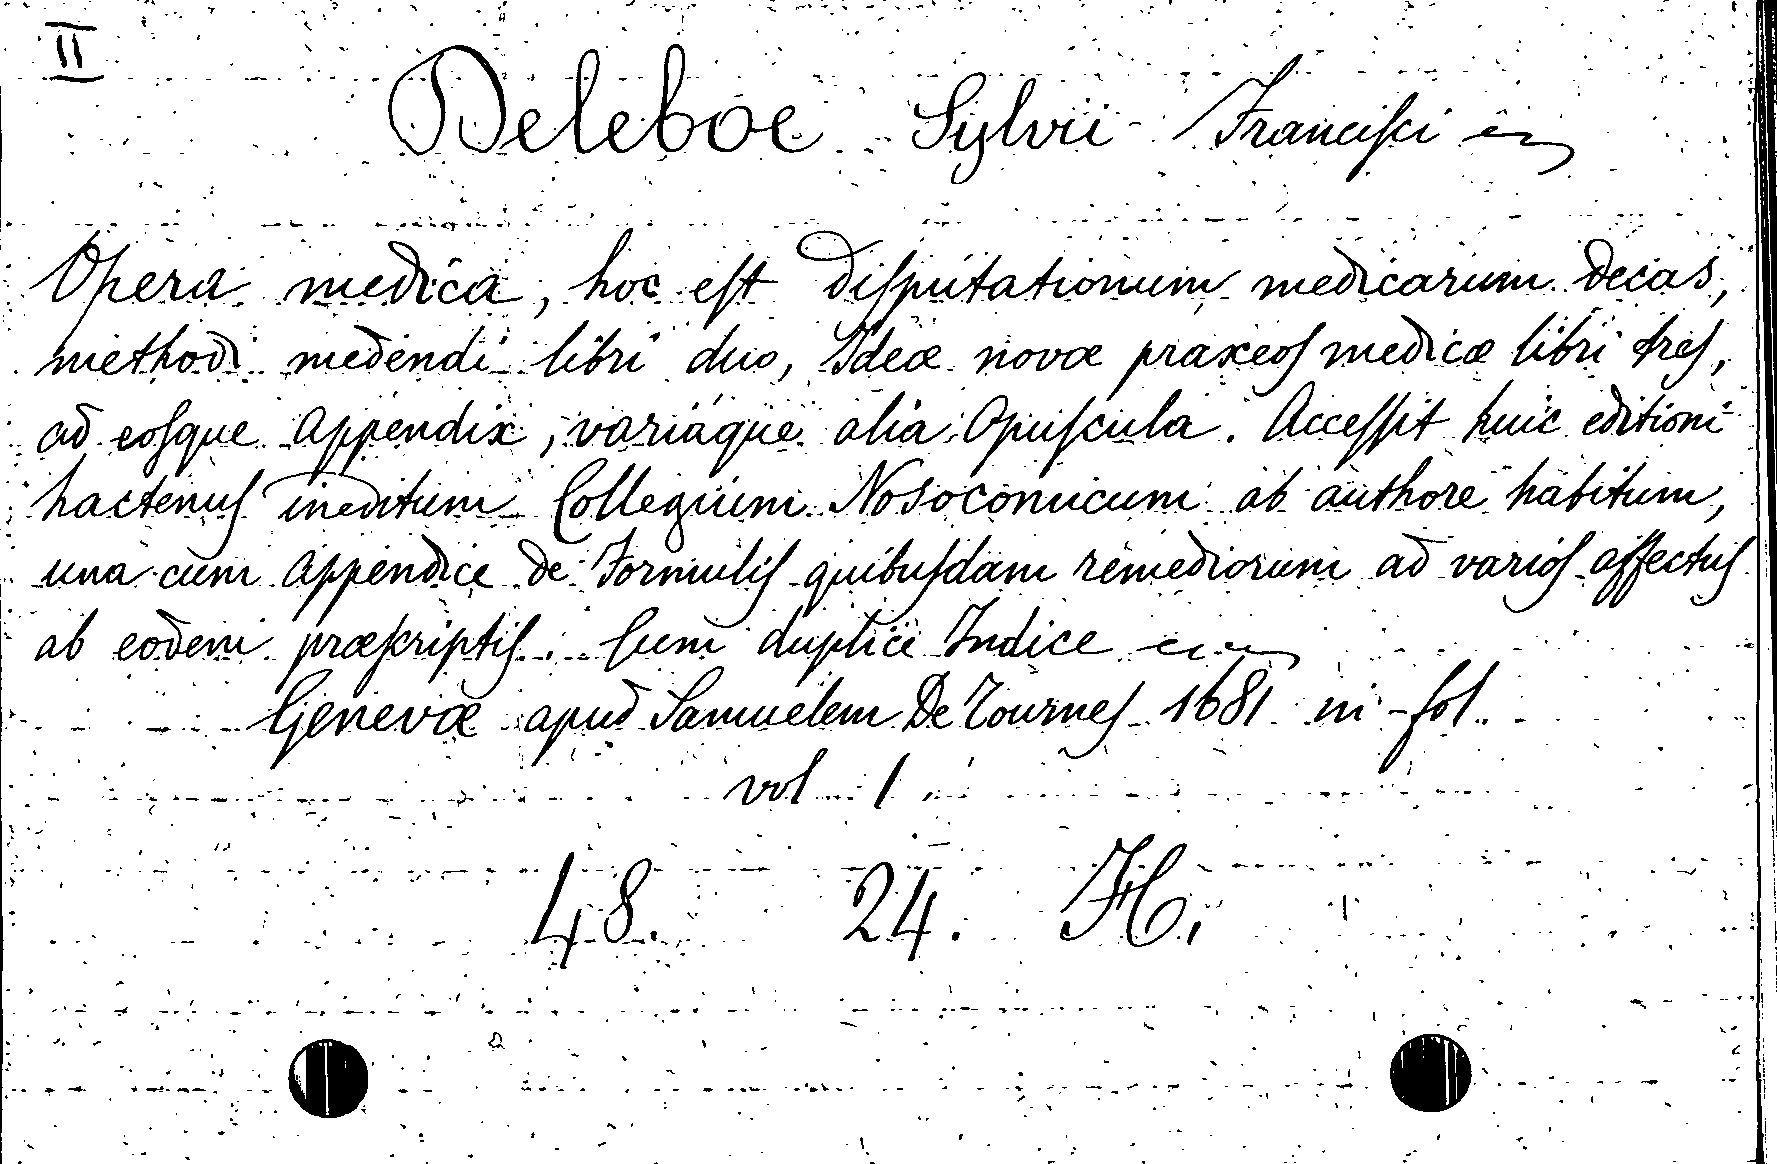 II
Deleboe Sylvii Franciſci
Opera medica, hoc eſt Diſputationum medicarum Decas,
methodi medendi libri duo, Ideæ novæ praxeoſ medicæ libri treſ,
ad eoſque Appendix, variaque alia Opuſcula. Acceſſit huic editioni
hactenuſ ineditum Collegium Nosocomicum ab authore habitum,
una cum Appendice de Formuliſ quibuſdam remediorum ad varioſ affectuſ
ab eodem præſcriptiſ. Cum duplici Indice
Genevæ apud Samuelem De Tourneſ 1681 in-fol.
vol 1
48. 24. H.